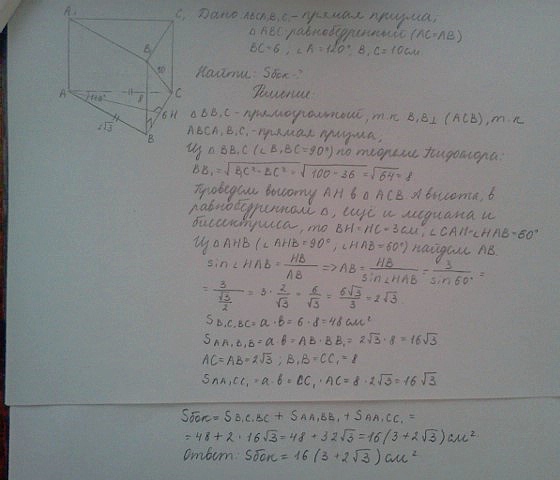 Дано: ABCA₁B₁C₁ - прямая призма,
△ ABC равнобедренный (AC=AB)
BC=6; ∠A=120°, B₁C=10см
Найти: Sбок-?
Решение:
A₁
C₁
B₁
10
A
120°
8
C
6
H
2√3
B
△ BB₁C - прямоугольный, т.к B₁B⊥(ACB), т.к
ABCA₁B₁C₁ - прямая призма,
Из △ BB₁C (∠B₁BC=90°) по теореме Пифагора:
BB₁=√B₁C²-BC²=√100-36=√64=8
Проведем высоту AH в △ ACB. A высота, в
равнобедренном △, ещё и медиана и
биссектриса, то BH=HC=3см, ∠CAH=∠HAB=60°
Из △AHB (∠AHB=90°, ∠HAB=60°) найдем AB.
sin∠HAB=HB/AB =>AB=HB/sin∠HAB=3/sin60°=
=3/(√3/2)=3·2/√3=6/√3=6√3/3=2√3.
S B₁C₁BC=a·b=6·8=48см²
S AA₁B₁B=a·b=AB·BB₁=2√3·8=16√3
AC=AB=2√3; B₁B=CC₁=8
S AA₁CC₁=a·b=CC₁·AC=8·2√3=16√3
Sбок=S B₁C₁BC+S AA₁BB₁+S AA₁CC₁=
=48+2·16√3=48+32√3=16(3+2√3)см²
Ответ: Sбок=16(3+2√3)см²